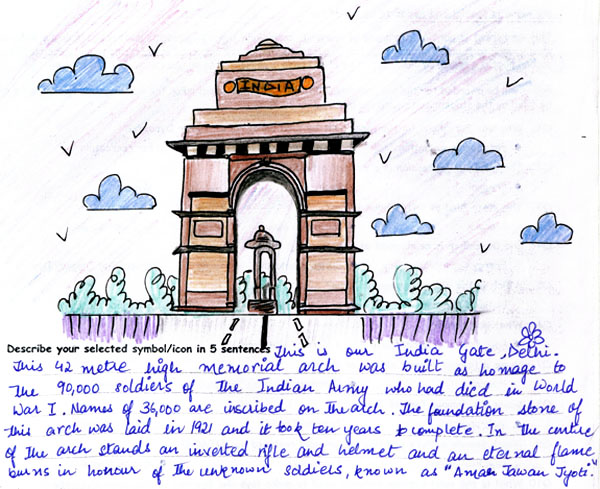 INDIA
Describe your selected symbol/icon in 5 sentences This is our India Gate, Delhi.
This 42 metre high memorial arch was built as homage to
The 90,000 soldiers of The Indian Army who had died in World
War I. Names of 36,000 are inscribed on The arch. The foundation stone of
This arch was laid in 1921 and it took ten years to complete. In The centre
of The arch stands an inverted rifle and helmet and an eternal flame
burns in honour of The unknown soldiers, known as "Amar Jawan Jyoti".